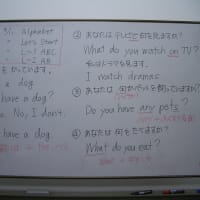 3/1. * Alphabet
* Let's Start
* L-1 ABC
* L-2 AB
を かっています。
a dog.
have a dog?
o. No, I don't.
② あなたは テレビで 何を見ますか?
What do you watch on TV?
私はドラマを見ます。
I watch dramas.
③ あなたは 何かペットを飼っていますか?
Do you have any pets?
any + 複数名詞
④ あなたは 何をたべますか?
What do you eat?